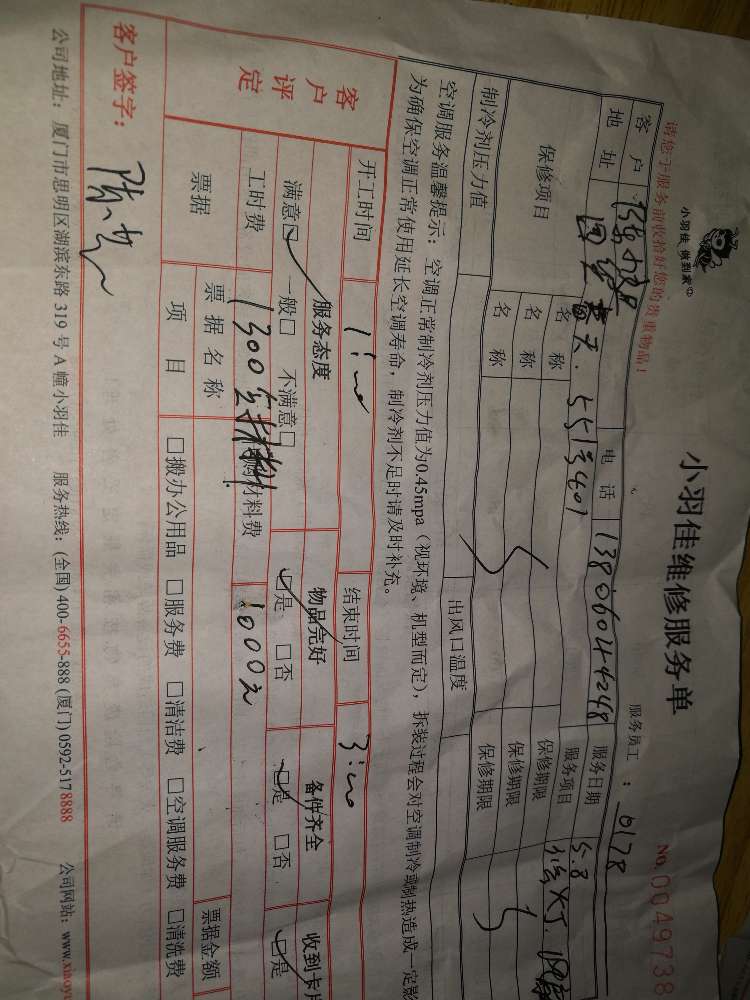 小羽佳 做到家
小羽佳维修服务单
NO.0049738
请您于服务前收拾好您的贵重物品！
服务员工：0178
客户 电话 13806044248 服务日期 5.8
地址 551号401 服务项目
保修项目 名称 保修期限
名称 保修期限
名称 保修期限
制冷剂压力值 出风口温度
空调服务温馨提示：空调正常制冷剂压力值为0.45mpa（视环境、机型而定），拆装过程会对空调制冷或制热造成一定影
为确保空调正常使用延长空调寿命，制冷剂不足时请及时补充。
客户评定
开工时间 1:00 结束时间 3:00
服务态度 物品完好 备件齐全 收到卡片
满意☑ 一般□ 不满意□ ☑是 □否 ☑是 □否 ☑是
工时费 1300 材料费 1000元
票据 票据名称 票据金额
项目 □搬办公用品 □服务费 □清洁费 □空调服务费 □清洗费
客户签字：
公司地址：厦门市思明区湖滨东路 319 号 A 幢小羽佳 服务热线：(全国) 400-6655-888 (厦门) 0592-5178888 公司网站：www.xiaoyu